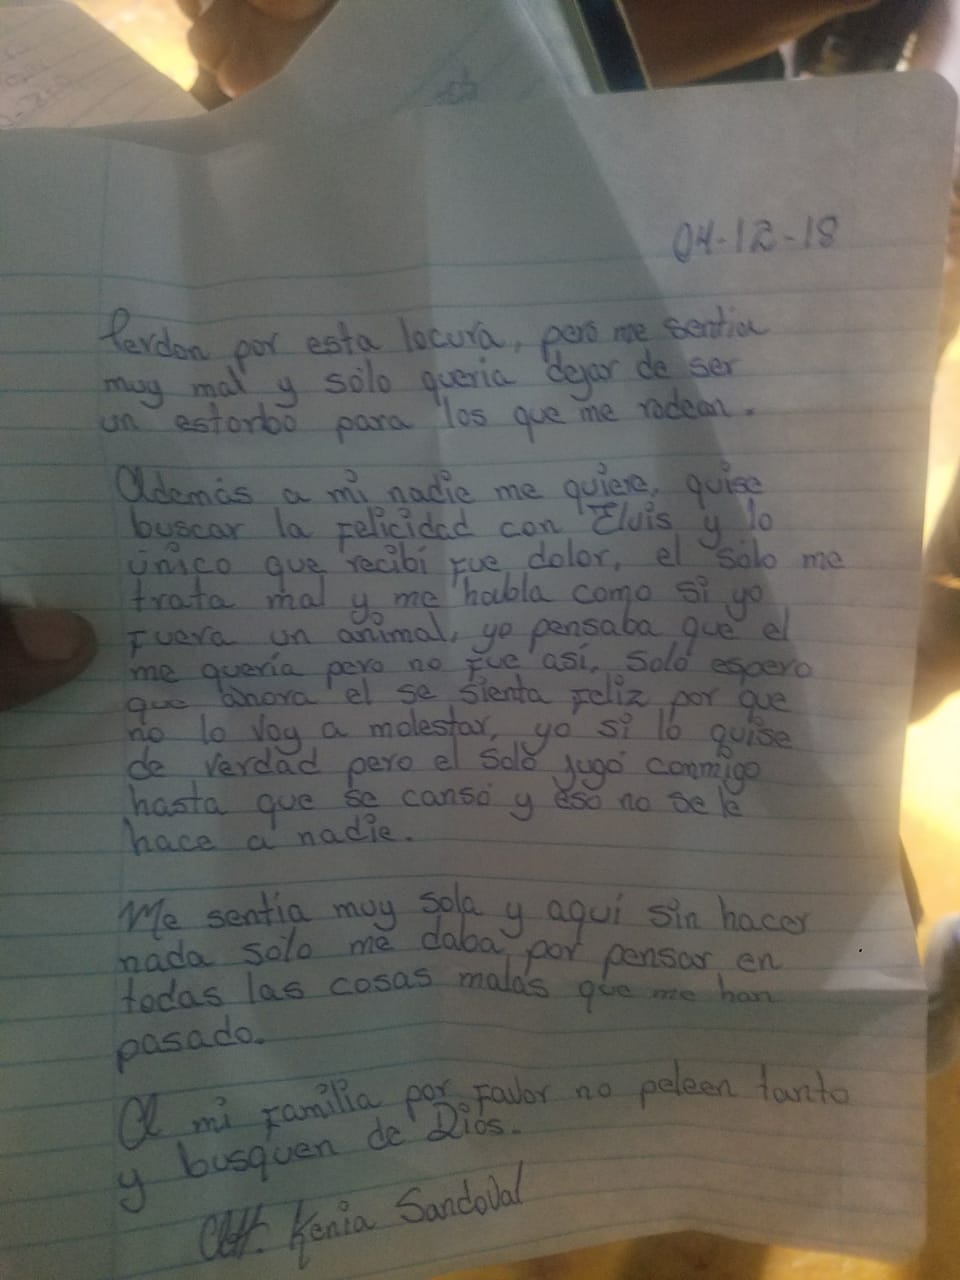 04-12-18
Perdon por esta locura, pero me sentia
muy mal y solo queria dejar de ser
un estorbo para los que me rodean.
Además a mi nadie me quiere, quise
buscar la felicidad con Elvis y lo
único que recibí fue dolor, el solo me
trata mal y me habla como si yo
fuera un animal, yo pensaba que el
me quería pero no fue así, solo espero
que ahora el se sienta feliz por que
no lo voy a molestar, yo si lo quise
de verdad pero el solo jugó conmigo
hasta que se canso y eso no se le
hace a nadie.
Me sentia muy sola y aqui sin hacer
nada solo me daba por pensar en
todas las cosas malas que me han
pasado.
A mi familia por favor no peleen tanto
y busquen de Dios.
Att. Kenia Sandoval